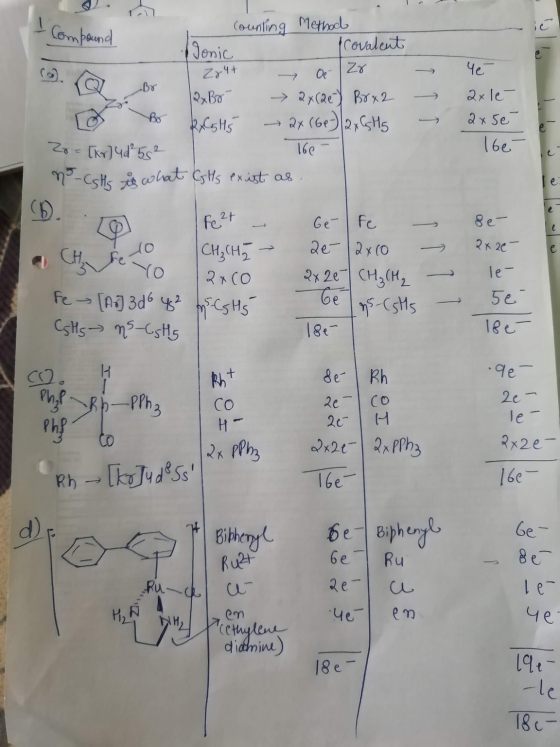 1 Compound Counting Method
Ionic Covalent
(a). Br Zr Br
Zr4+ → 0e- Zr → 4e-
2xBr- → 2x(2e-) Br x 2 → 2x1e-
2xC5H5- → 2x(6e-) 2xC5H5 → 2x5e-
16e- 16e-
Zr = [Kr]4d2 5s2
η5-C5H5 is what C5H5 exist as.
(b). Fe CO CO CH3
Fe2+ → 6e- Fe → 8e-
CH3CH2- → 2e- 2xCO → 2x2e-
2xCO 2x2e- CH3CH2 → 1e-
η5-C5H5- 6e- η5-C5H5 → 5e-
18e- 18e-
Fe → [Ar]3d6 4s2
C5H5 → η5-C5H5
(c). H Ph3P Rh PPh3 Ph3P CO
Rh+ 8e- Rh 9e-
CO 2e- CO 2e-
H- 2e- H 1e-
2x PPh3 2x2e- 2xPPh3 2x2e-
16e- 16e-
Rh → [Kr]4d8 5s1
d) + Ru Cl H2N NH2
Biphenyl 6e- Biphenyl 6e-
Ru2+ 6e- Ru → 8e-
Cl- 2e- Cl 1e-
en 4e- en 4e
(ethylene
diamine)
18e- 19e-
-1e
18e-